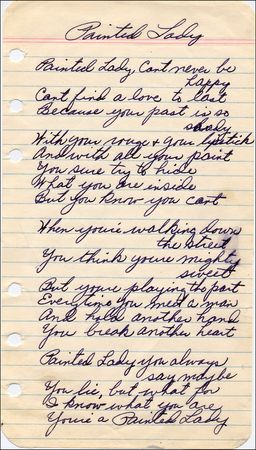 Painted Lady
Painted Lady, Cant never be
happy
Cant find a love to last
Because your past is so
shady
With your rouge & your lipstick
And with all your paint
You sure try to hide
What you are inside
But you know you cant
When you're walking down
the street
You think you're mighty
sweet
But your playing the part
Everytime you meet a man
And hold another hand
You break another heart
Painted Lady you always
say maybe
You lie, but what for
I know what you are
You're a Painted Lady